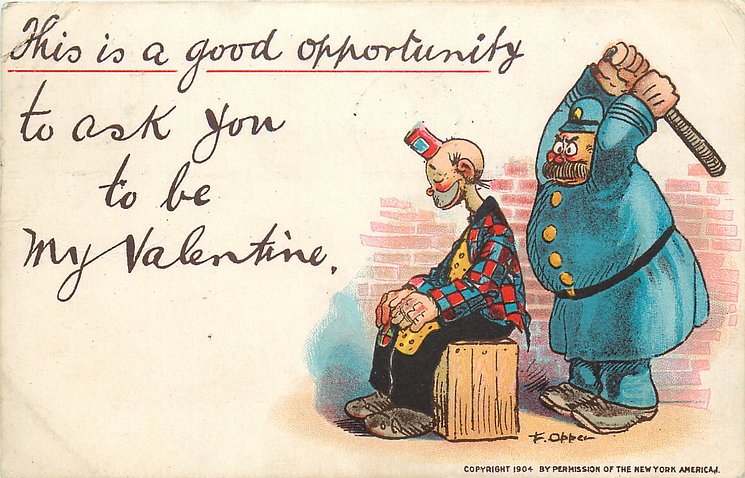 This is a good opportunity
to ask you
to be
My Valentine.
F. Opper
COPYRIGHT 1904 BY PERMISSION OF THE NEW YORK AMERICA.J.